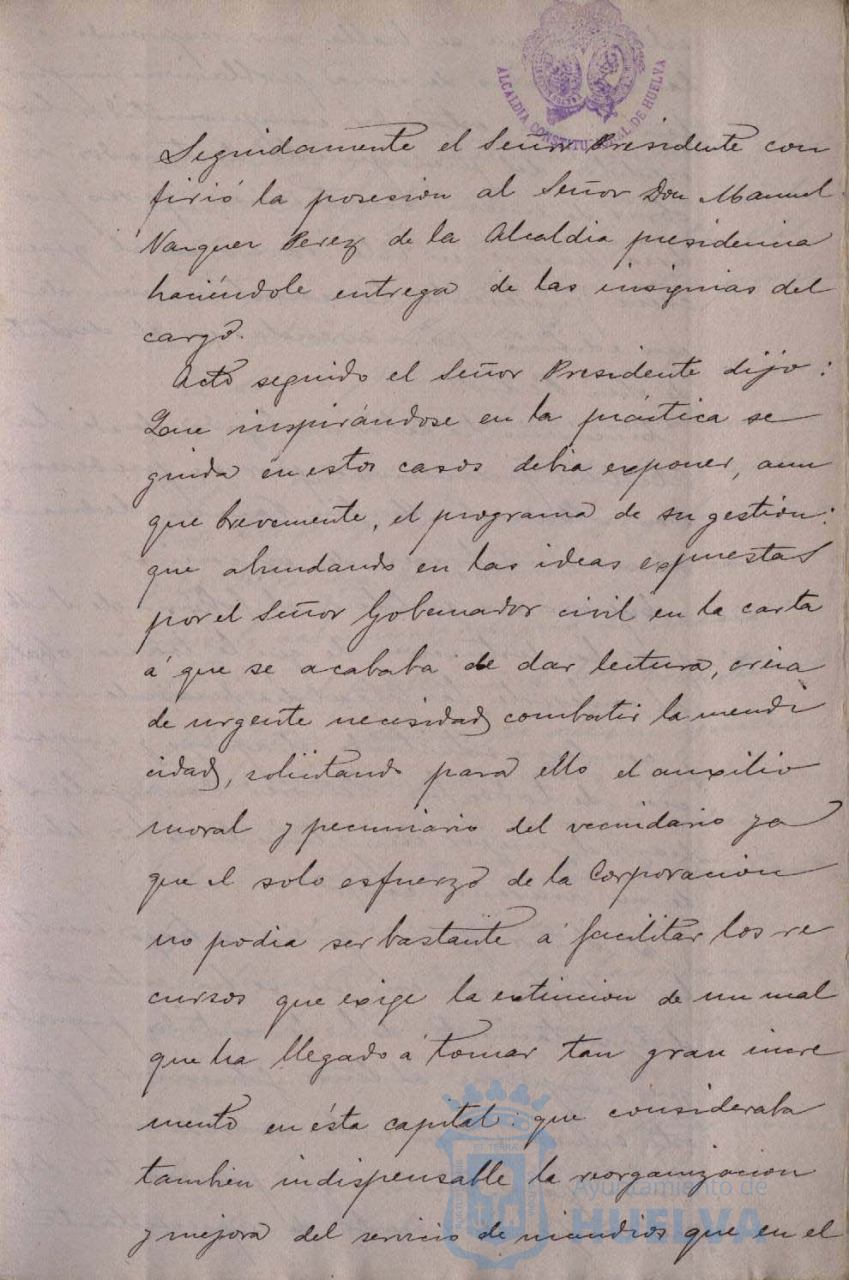 ALCALDIA CONSTITUCIONAL DE HUELVA
Seguidamente el Señor Presidente con
firió la posesion al Señor Don Manuel
Vazquez Perez de la Alcaldia presidencia
haciéndole entrega de las insignias del
cargo.
Acto seguido el Señor Presidente dijo:
Que inspirándose en la práctica se
guida en estos casos debia exponer, aun
que brevemente, el programa de su gestion:
que abundando en las ideas expuestas
por el Señor Gobernador civil en la carta
á que se acababa de dar lectura, creia
de urgente necesidad combatir la mendi
cidad, solicitando para ello el auxilio
moral y pecuniario del vecindario ya
que el solo esfuerzo de la Corporacion
no podia ser bastante á facilitar los re
cursos que exige la extincion de un mal
que ha llegado á tomar tan gran incre
mento en ésta capital: que consideraba
tambien indispensable la reorganizacion
y mejora del servicio de incendios que en el
Ayuntamiento de
HUELVA